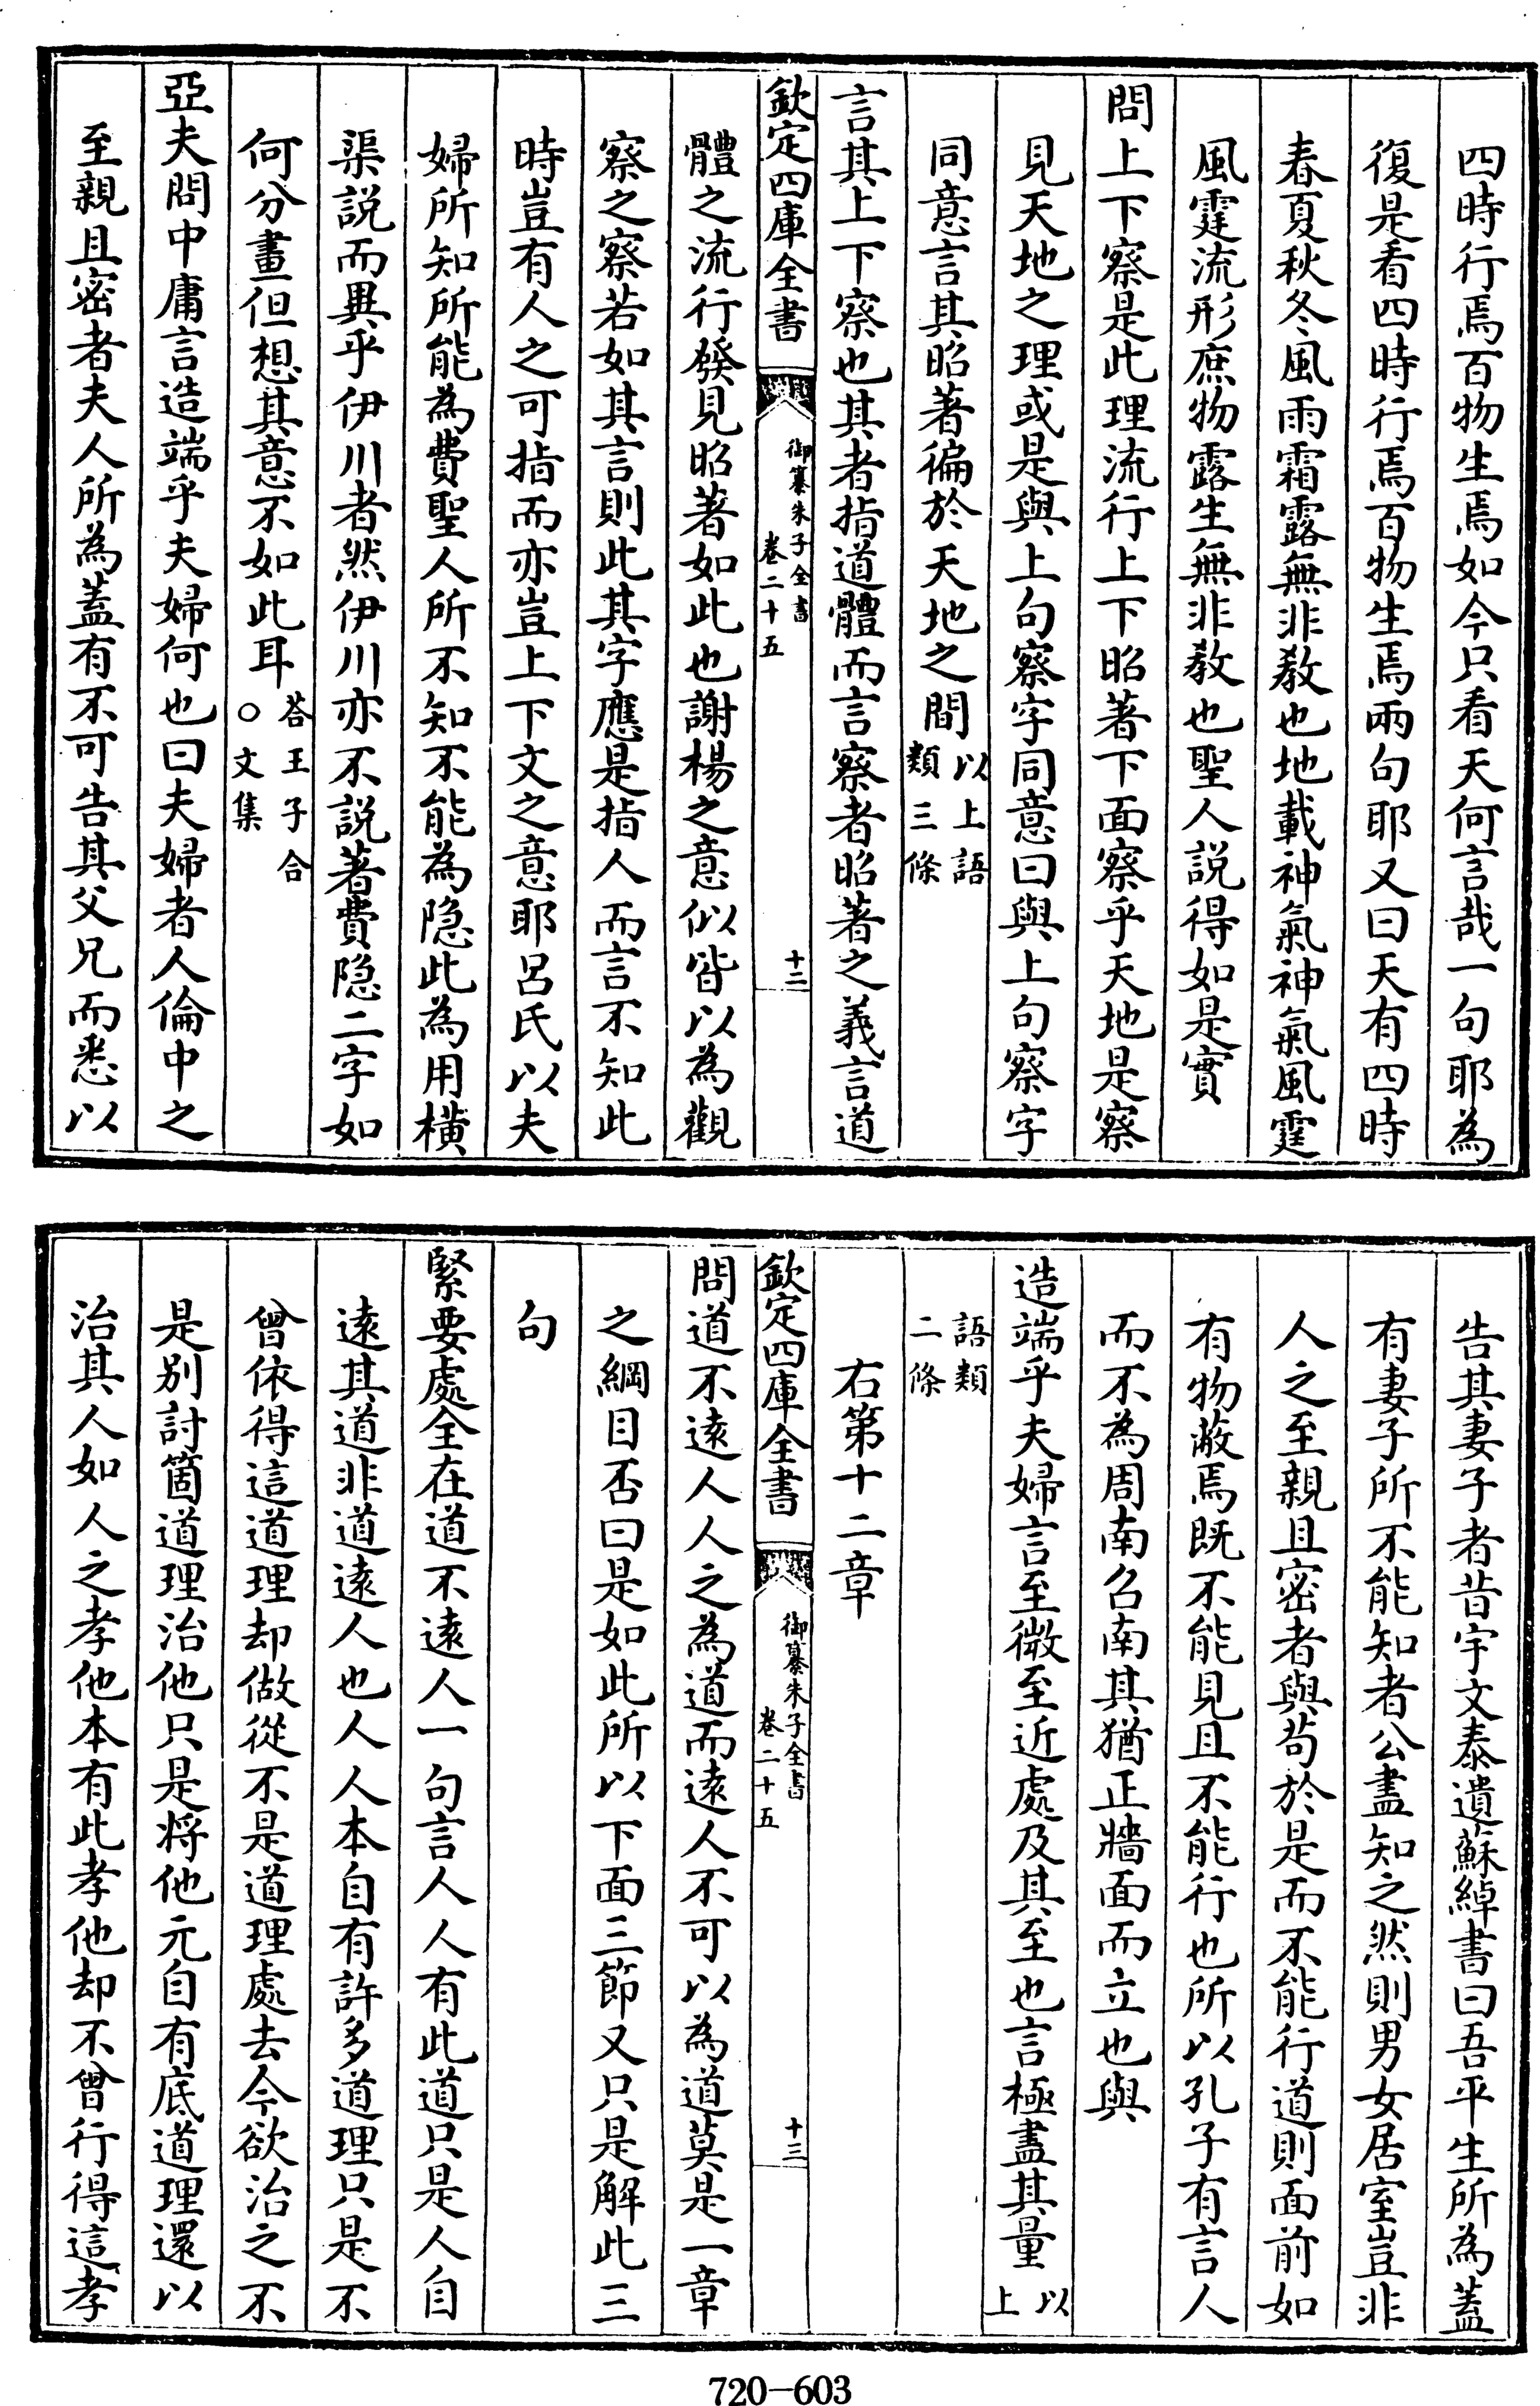 四時行焉百物生焉如今只看天何言哉一句耶為
復是看四時行焉百物生焉兩句耶又曰天有四時
春夏秋冬風雨霜露無非教也地載神氣神氣風霆
風霆流形庶物露生無非教也聖人說得如是實
問上下察是此理流行上下昭著下面察乎天地是察
見天地之理或是與上句察字同意曰與上句察字
同意言其昭著徧於天地之間以上語類三條
言其上下察也其者指道體而言察者昭著之義言道
欽定四庫全書
御纂朱子全書
卷二十五
十二
體之流行發見昭著如此也謝楊之意似皆以為觀
察之察若如其言則此其字應是指人而言不知此
時豈有人之可指而亦豈上下文之意耶呂氏以夫
婦所知所能為費聖人所不知不能為隐此為用橫
渠説而異乎伊川者然伊川亦不説著費隐二字如
何分畫但想其意不如此耳答王子合○文集
亞夫問中庸言造端乎夫婦何也曰夫婦者人倫中之
至親且密者夫人所為蓋有不可告其父兄而悉以
告其妻子者昔宇文泰遺蘇綽書曰吾平生所為蓋
有妻子所不能知者公盡知之然則男女居室豈非
人之至親且密者與苟於是而不能行道則面前如
有物蔽焉既不能見且不能行也所以孔子有言人
而不為周南召南其猶正牆面而立也與
造端乎夫婦言至微至近處及其至也言極盡其量以上
語類二條
右第十二章
欽定四庫全書
御纂朱子全書
卷二十五
十三
問道不遠人人之為道而遠人不可以為道莫是一章
之綱目否曰是如此所以下面三節又只是解此三
句
緊要處全在道不遠人一句言人人有此道只是人自
遠其道非道遠人也人人本自有許多道理只是不
曾依得這道理却做從不是道理處去今欲治之不
是別討箇道理治他只是將他元自有底道理還以
治其人如人之孝他本有此孝他却不曾行得這孝
720-603